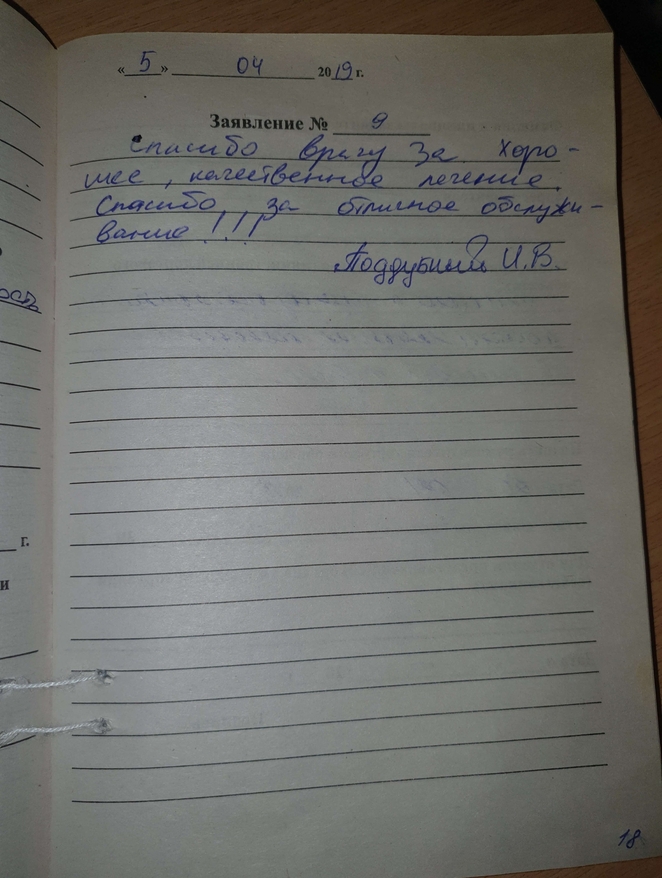 « 5 » 04 2019 г.
Заявление № 9
Спасибо врачу за хоро-
шее, качественное лечение.
Спасибо за отличное обслужи-
вание!!!
Поддубный И.В.
ость
г.
и
18